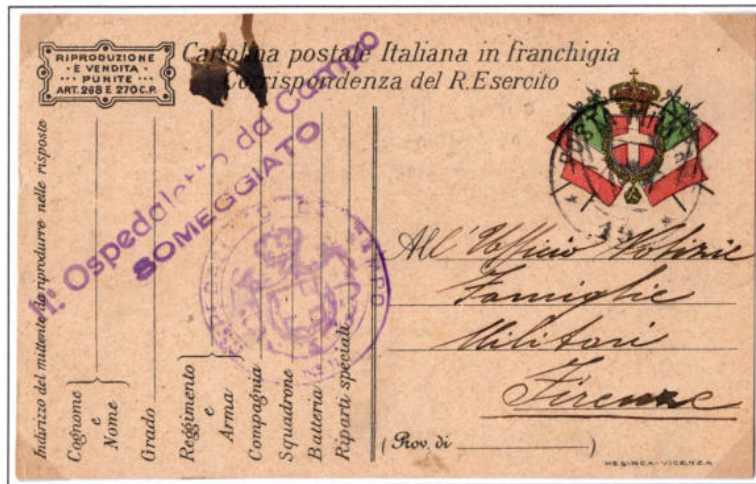 RIPRODUZIONE
E VENDITA
PUNITE
ART. 268 E 270 C.P.
Cartolina postale Italiana in franchigia
Corrispondenza del R. Esercito
Ospedaletto da Campo
SOMEGGIATO
POSTA
Indirizzo del mittente da riprodurre nelle risposte
Cognome
e
Nome
Grado
Reggimento
e
Arma
Compagnia
Squadrone
Batteria
Riparti speciali
All'Ufficio Notizie
Famiglie
Militari
Firenze
(Prov. di )